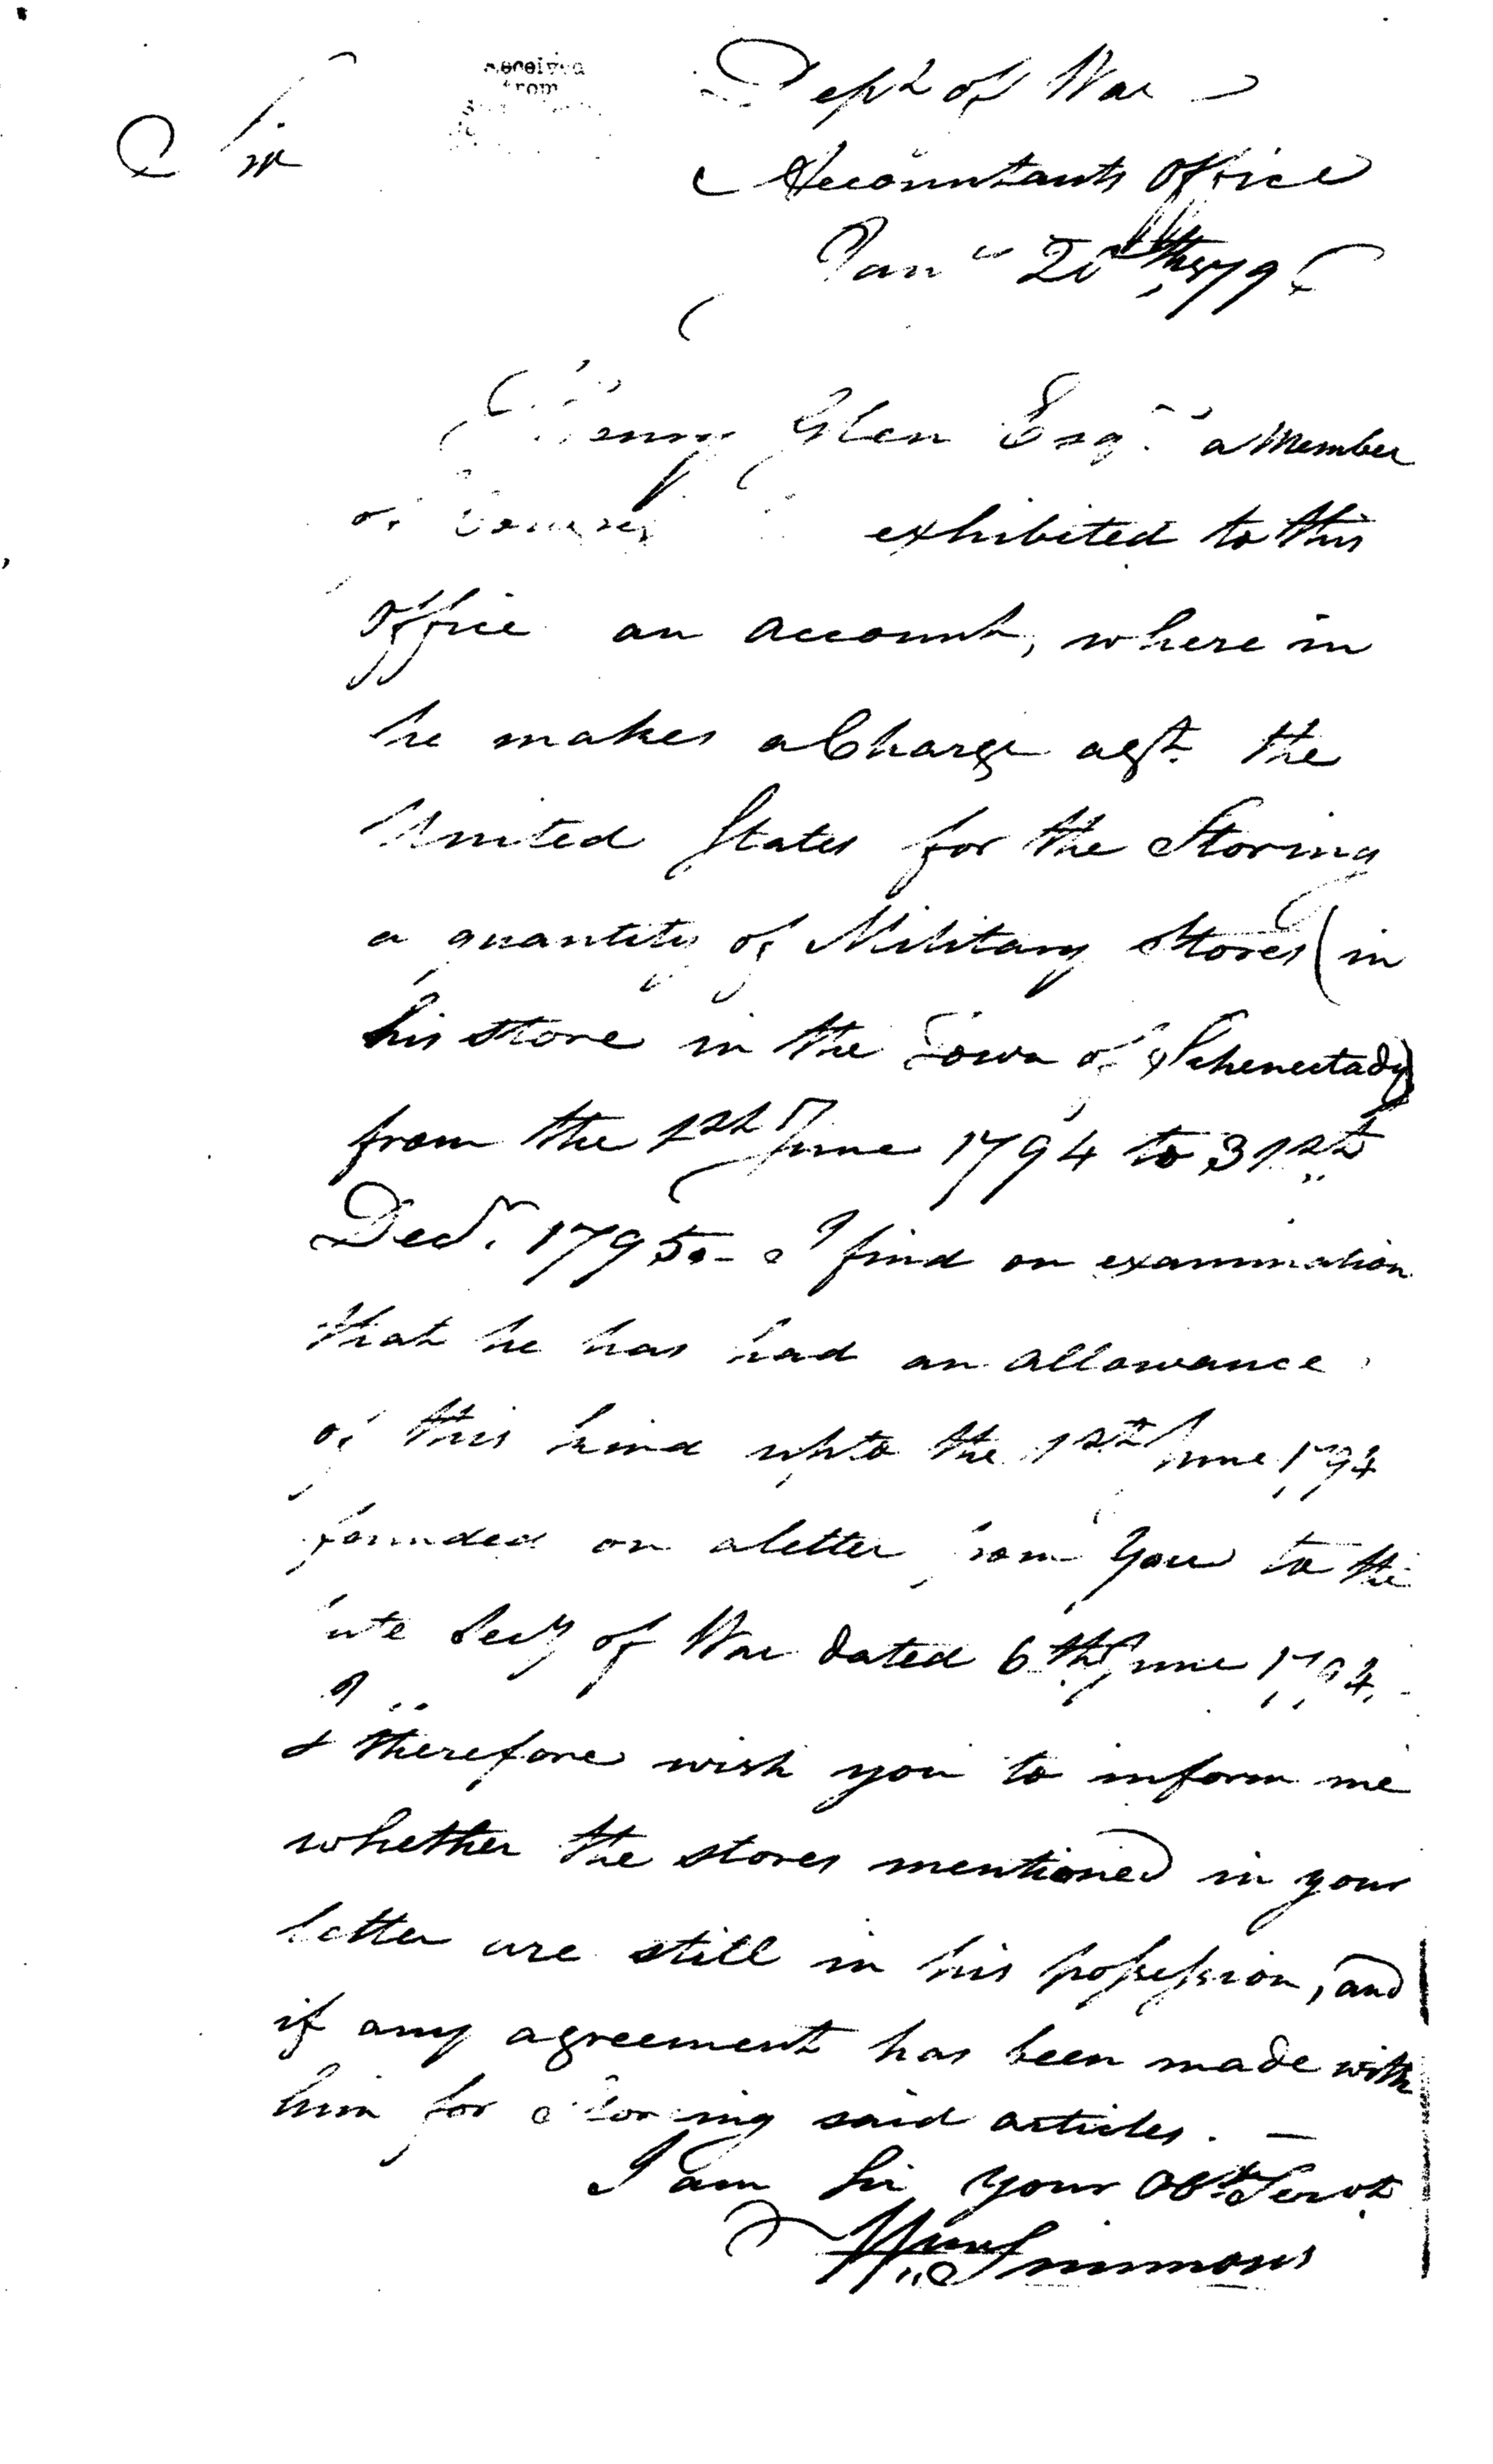 Received
from
Dept of War
Sir
Accountants Office
Jany 20th 179
Henry Glen Esqr. a Member
of Congress exhibited to this
Office an account, where in
he makes a Charge agst. the
United States for the Storing
a quantity of Military Stores (in
his store in the Town of Schenectady)
from the 1st June 1794 to 31st
Decr. 1795.- I find on examination
that he has had an allowance
of this kind upto the 1st June 1794
founded on a letter from You to the
late Secy of War dated 6th June 1794. -
I therefore wish you to inform me
whether the stores mentioned in your
letter are still in his possession, and
if any agreement has been made with
him for Storing said articles. —
I am Sir your Obt. Servt.
Wm Simmons